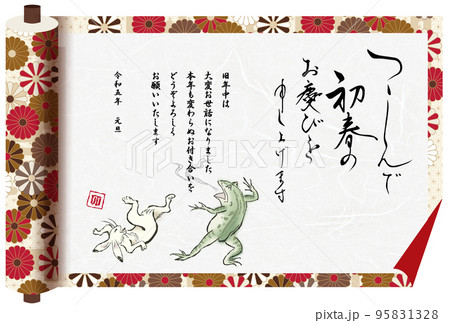 つゝしんで
初春の
お慶びを
申し上げます
旧年中は
大変お世話になりました
本年も変わらぬお付き合いを
どうぞよろしく
お願いいたします
令和五年 元旦
卯
pixta
95831328